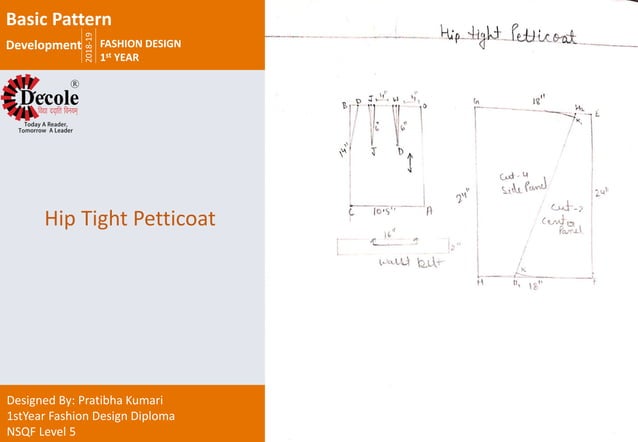 Basic Pattern
Development
2018-19
FASHION DESIGN
1st YEAR
®
Decole
विद्या ददाति विनयम्
Today A Reader,
Tomorrow A Leader
Hip Tight Petticoat
Designed By: Pratibha Kumari
1stYear Fashion Design Diploma
NSQF Level 5
Hip tight Petticoat
B P I 4" H 4" O
6" 6"
14" J D
C 10.5" A
16"
2"
waist belt
G 18" H2 E
K1
Cut-4
Side Panel
24" 24"
Cut-2
Panel
K
H 18" F